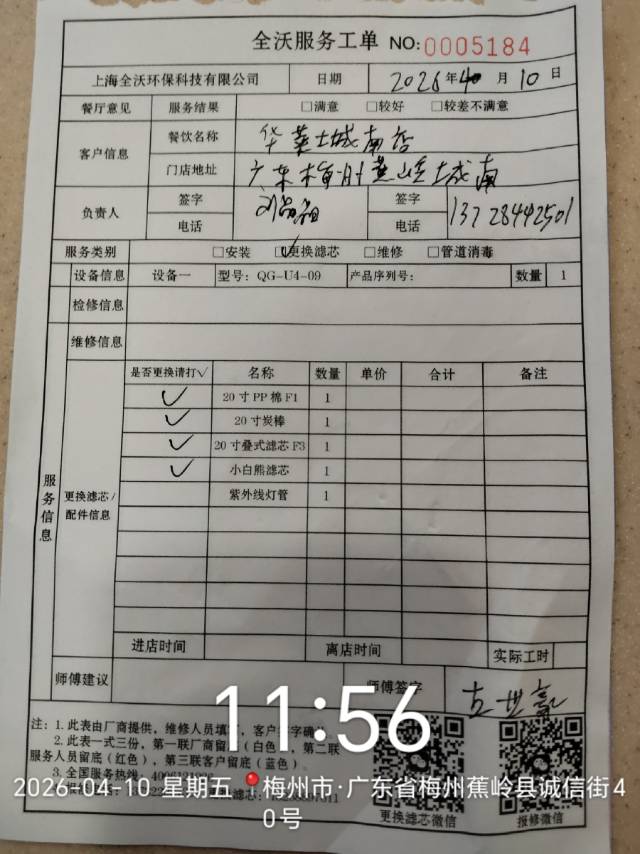 全沃服务工单 NO:0005184
上海全沃环保科技有限公司 日期 2026年4月10日
餐厅意见 服务结果 □满意 □较好 □较差不满意
客户信息 餐饮名称 华莱士城南店
门店地址 广东梅州蕉岭城南
负责人 签字 签字
电话 电话 13728442501
服务类别 □安装 ☑更换滤芯 □维修 □管道消毒
设备信息 设备一 型号: QG-U4-09 产品序列号: 数量 1
检修信息
维修信息
服务信息
更换滤芯/配件信息
是否更换请打√ 名称 数量 单价 合计 备注
✓ 20寸PP棉F1 1
✓ 20寸炭棒 1
✓ 20寸叠式滤芯F3 1
✓ 小白熊滤芯 1
紫外线灯管 1
进店时间 离店时间 实际工时
师傅建议 师傅签字
11:56
注: 1. 此表由厂商提供, 维修人员填写, 客户签字确认
2. 此表一式三份, 第一联厂商留底(白色), 第二联
服务人员留底(红色), 第三联客户留底(蓝色)。
3. 全国服务热线:
2026-04-10 星期五 梅州市·广东省梅州蕉岭县诚信街4
0号
更换滤芯微信 报修微信